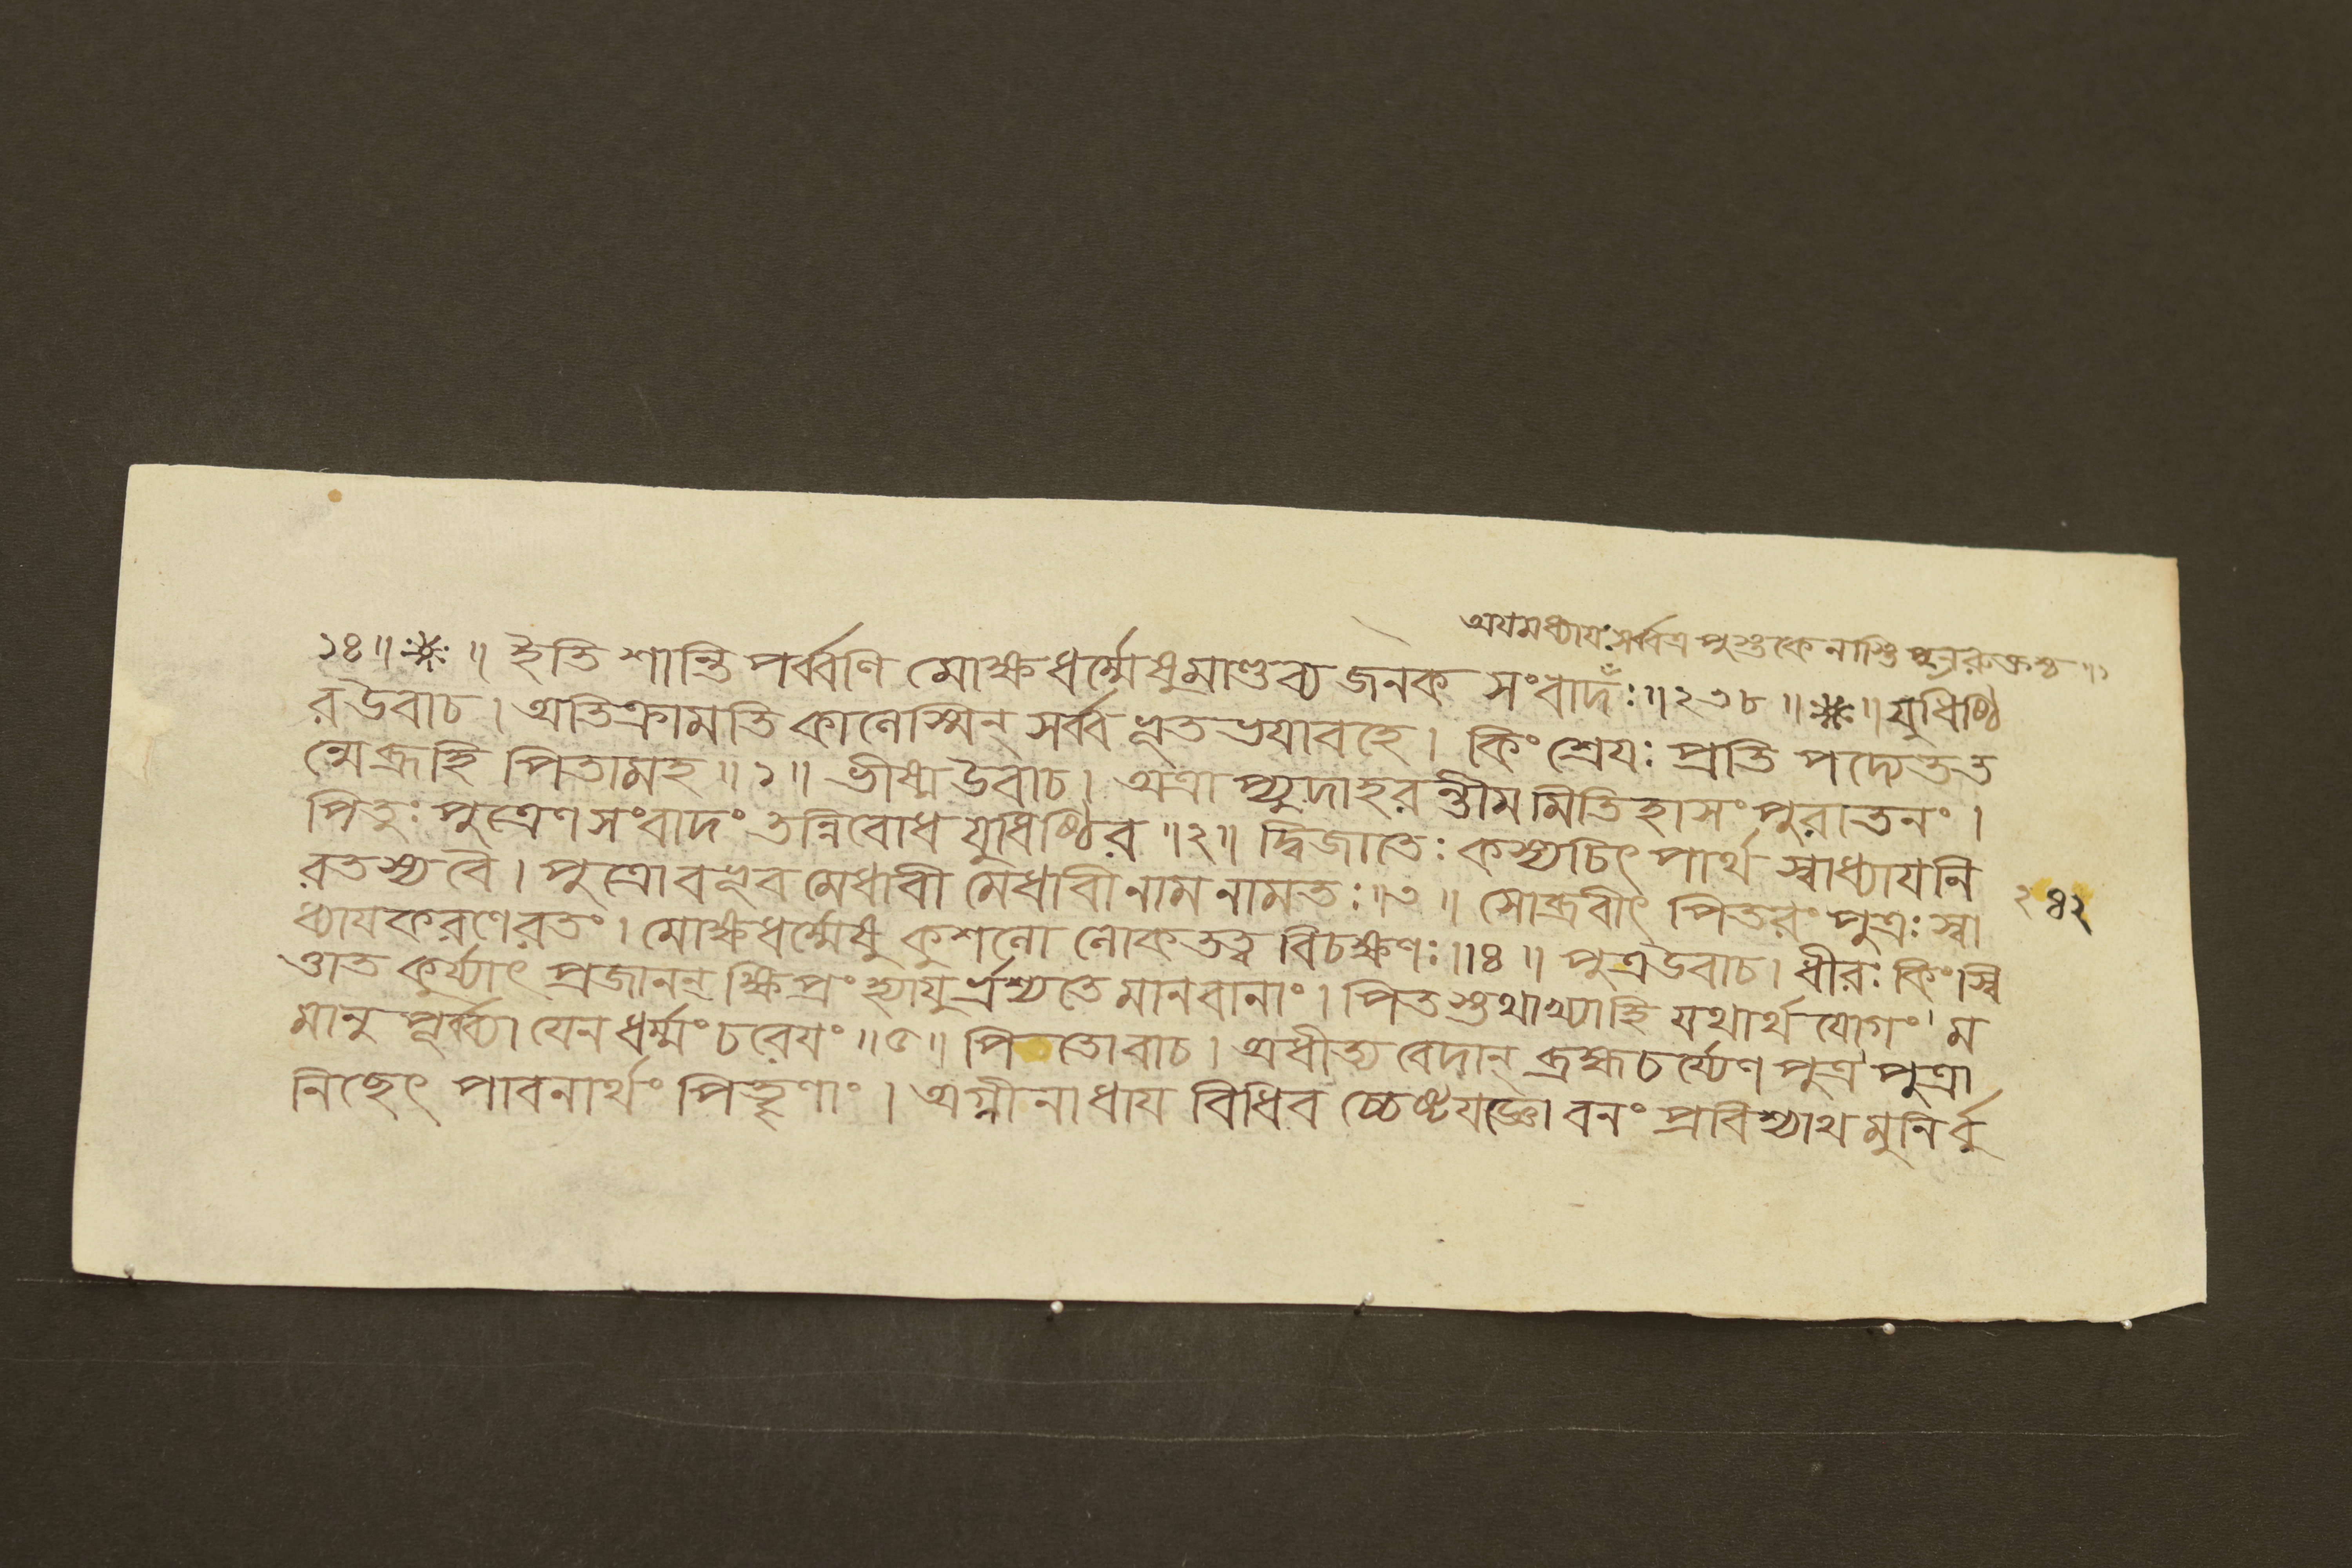 অযমধ্যাযঃ সর্ব্বত্র পুস্তকে নাস্তি পুনরুক্তশ্চ ॥
১৪॥ ※ ॥ ইতি শান্তি পর্ব্বণি মোক্ষধর্ম্মেষু মাণ্ডব্য জনক সংবাদঃ ॥২৩৮॥ ※ ॥ যুধিষ্ঠি
র উবাচ । অতিক্রামতি কালেস্মিন্ সর্ব্ব ভূত ভযাবহে । কিং শ্রেযঃ প্রতি পদ্যেত ত
ন্মে ব্রূহি পিতামহ ॥১॥ ভীষ্ম উবাচ । অত্রা প্যুদাহরন্তীমমিতিহাসং পুরাতনং ।
পিতুঃ পুত্রেণ সংবাদং তন্নিবোধ যুধিষ্ঠির ॥২॥ দ্বিজাতেঃ কস্যচিৎ পার্থ স্বাধ্যাযনি
রতস্য বৈ । পুত্রো বভূব মেধাবী মেধাবী নাম নামতঃ ॥৩॥ সোব্রবীৎ পিতরং পুত্রঃ স্বা
ধ্যাযকরণেরতং । মোক্ষধর্ম্মেষু কুশলো লোকতত্ত্ব বিচক্ষণঃ ॥৪॥ পুত্র উবাচ । ধীরঃ কিংস্বি
ত্তাত কুর্য্যাৎ প্রজানন্ ক্ষিপ্রং হ্যাযুর্ভ্রশ্যতে মানবানাং । পিতস্তথাখ্যাহি যথার্থ যোগং ম
মানু পূর্ব্ব্যা যেন ধর্ম্মং চরেযং ॥৫॥ পিতোবাচ । অধীত্য বেদান্ ব্রহ্মচর্য্যেণ পুত্র পুত্রা
নিছেৎ পাবনার্থং পিতৄণাং । অগ্নীনাধায বিধিব চ্চেষ্টযজ্ঞো বনং প্রবিশ্যাথ মুনির্বু
২৪২